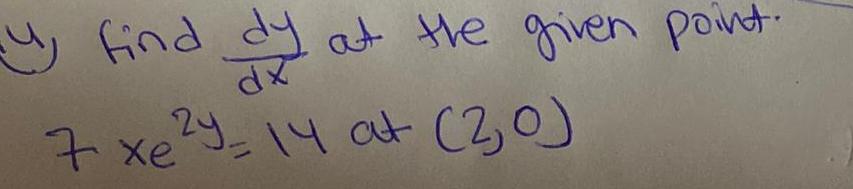 4) find dy/dx at the given point.
7xe^{2y} = 14 at (2,0)